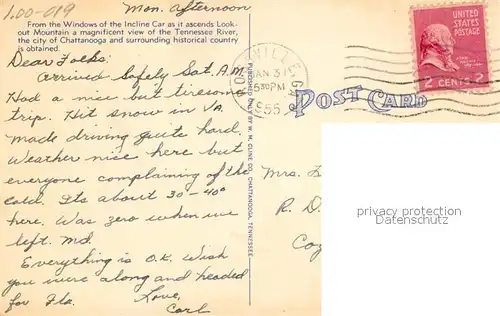 1.00-019
Mon. Afternoon
From the Windows of the Incline Car as it ascends Look-
out Mountain a magnificent view of the Tennessee River,
the city of Chattanooga and surrounding historical country
is obtained.
Dear Folks:
Arrived Safely Sat. A.M.
Had a nice but tiresome
trip. Hit snow in Va.
made driving quite hard.
Weather nice here but
everyone complaining of the
Cold. Its about 30-40°
here. Was zero when we
left. Md.
Everything is O.K. Wish
you were along and headed
for Fla.
Love,
Carl
PUBLISHED ONLY BY W. M. CLINE CO., CHATTANOOGA, TENNESSEE
VILLE
JAN 31
530 PM
1955
POST CARD
UNITED
STATES
POSTAGE
2 CENTS 2
Mrs.
R. D.
privacy protection
Datenschutz